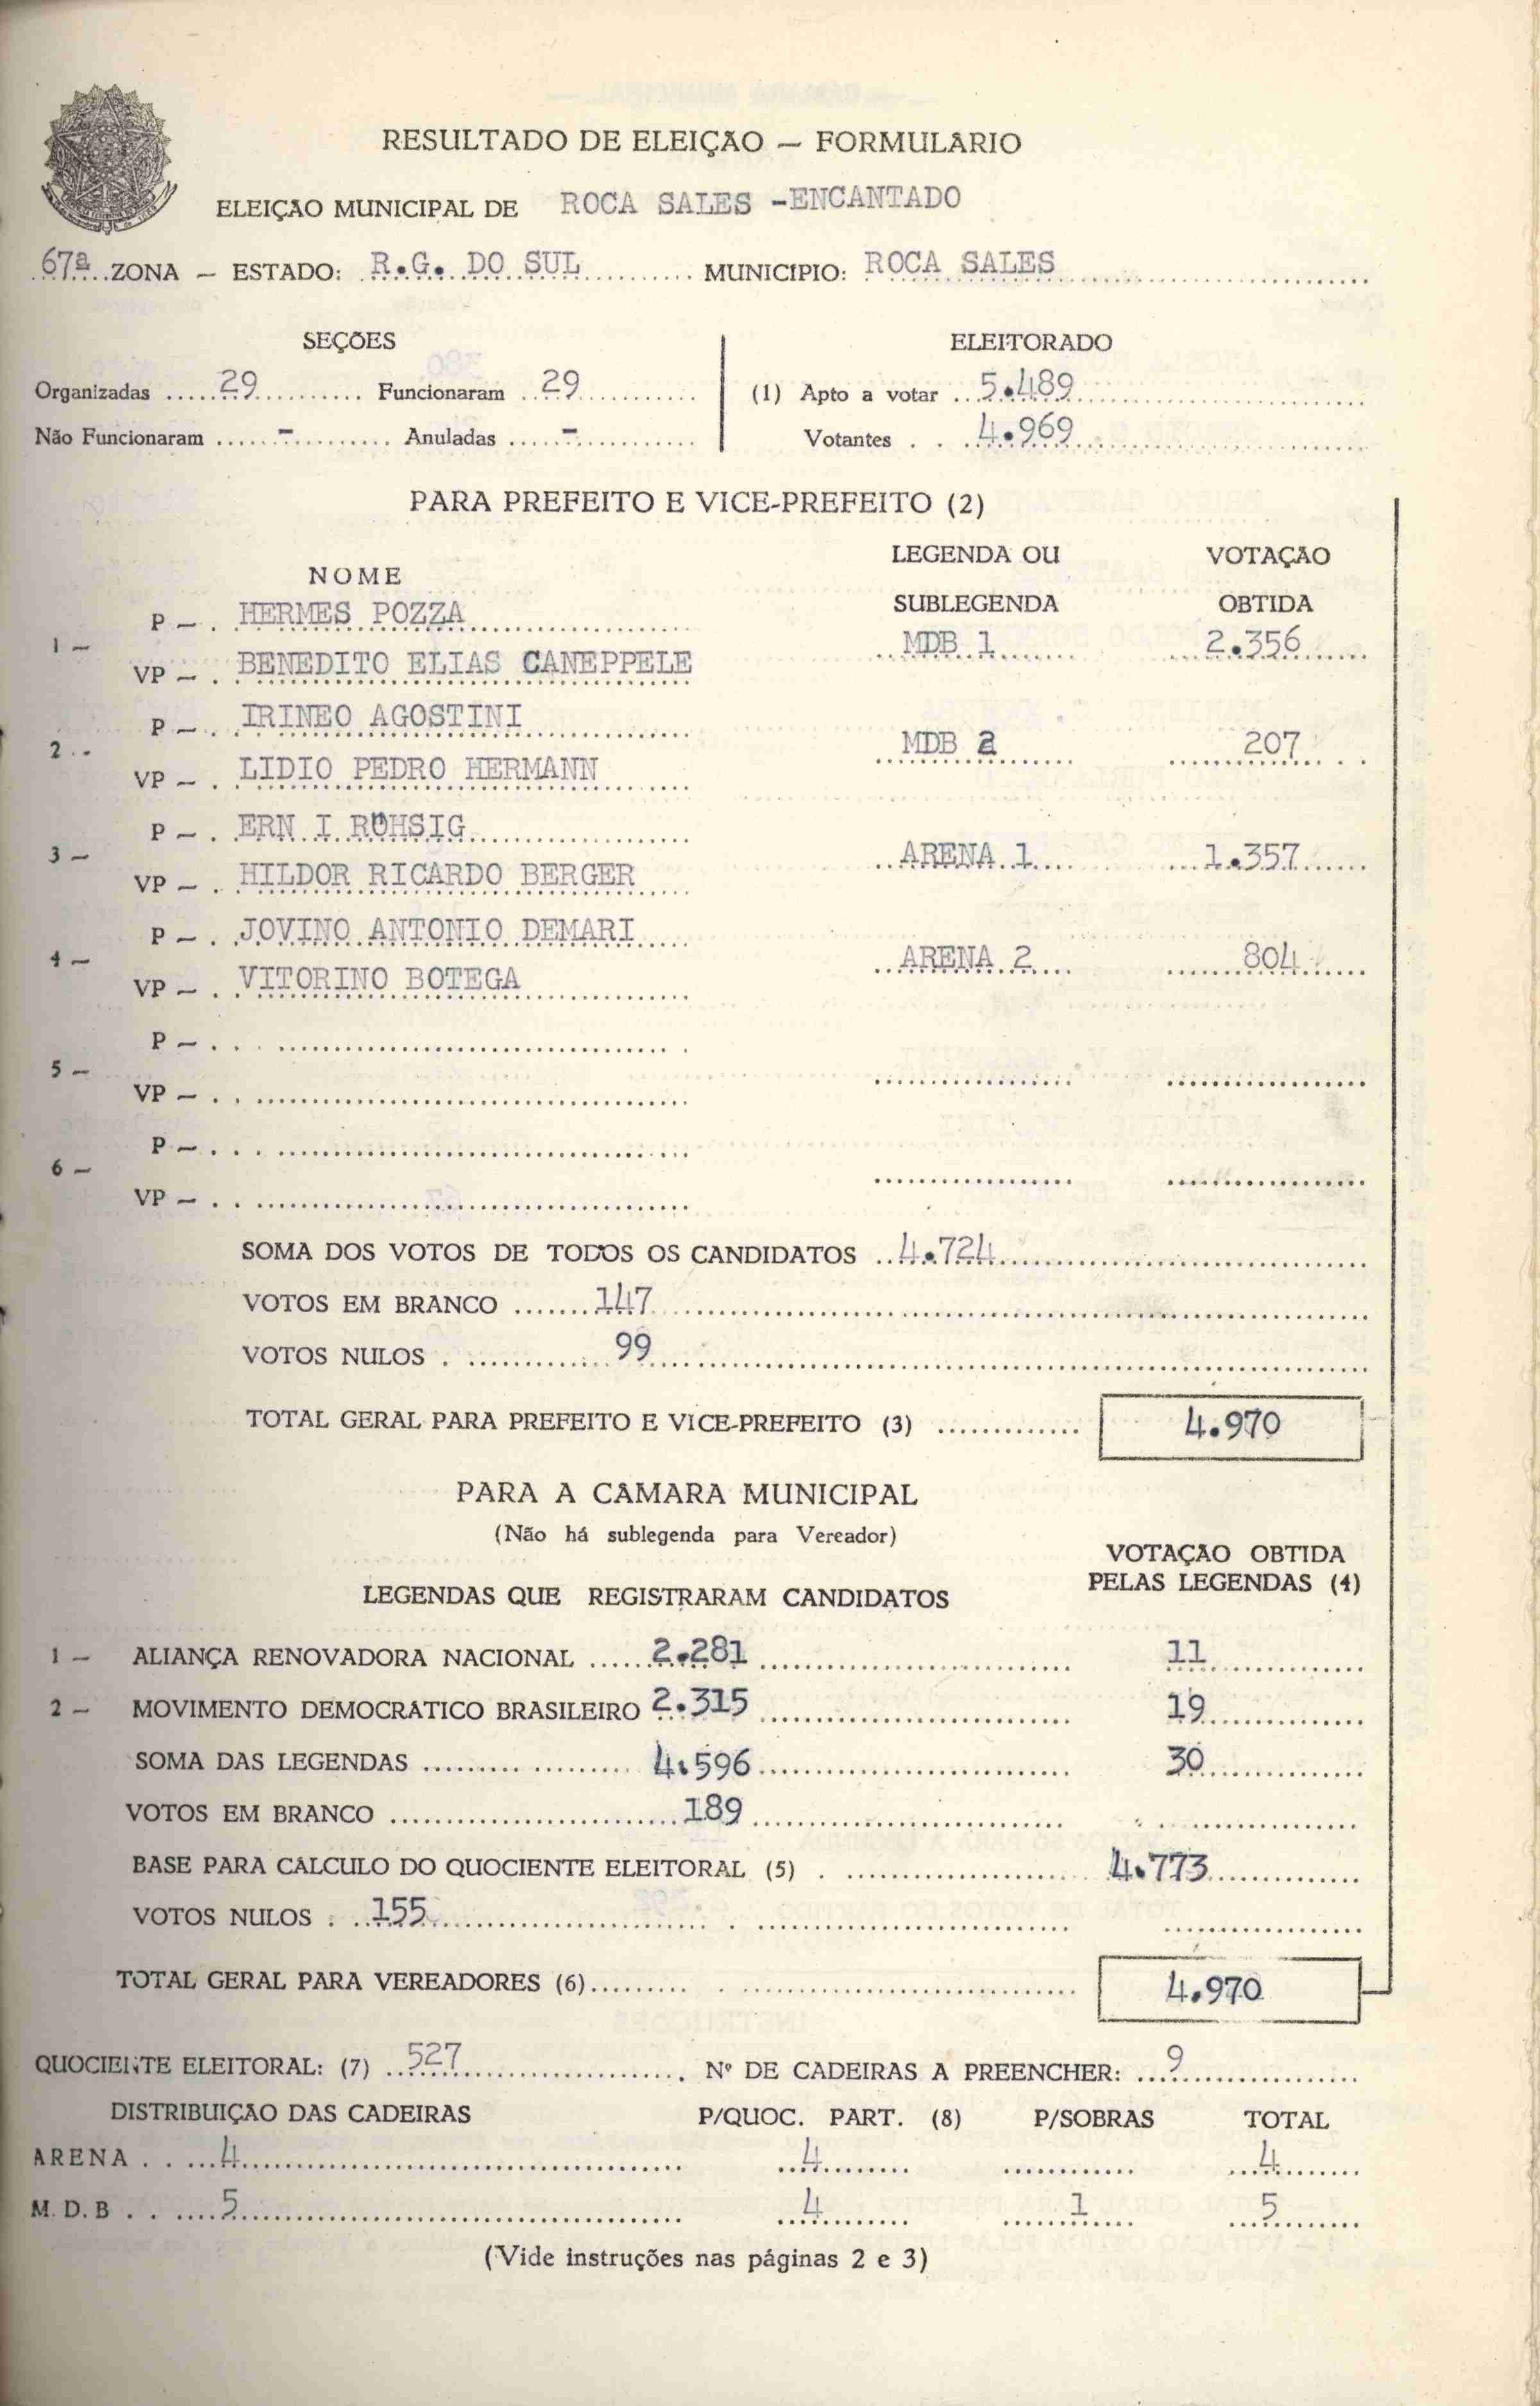 RESULTADO DE ELEIÇÃO — FORMULÁRIO
ELEIÇÃO MUNICIPAL DE ROCA SALES -ENCANTADO
67ª ZONA — ESTADO: R.G. DO SUL MUNICIPIO: ROCA SALES
SEÇÕES ELEITORADO
Organizadas 29 Funcionaram 29 (1) Apto a votar 5.489
Não Funcionaram - Anuladas - Votantes 4.969
PARA PREFEITO E VICE-PREFEITO (2)
NOME LEGENDA OU SUBLEGENDA VOTAÇÃO OBTIDA
P — HERMES POZZA
1 — MDB 1 2.356
VP — BENEDITO ELIAS CANEPPELE
P — IRINEO AGOSTINI
2 - MDB 2 207
VP — LIDIO PEDRO HERMANN
P — ERN I ROHSIG
3 — ARENA 1 1.357
VP — HILDOR RICARDO BERGER
P — JOVINO ANTONIO DEMARI
4 — ARENA 2 804
VP — VITORINO BOTEGA
P —
5 —
VP —
P —
6 —
VP —
SOMA DOS VOTOS DE TODOS OS CANDIDATOS 4.724
VOTOS EM BRANCO 147
VOTOS NULOS 99
TOTAL GERAL PARA PREFEITO E VICE-PREFEITO (3) 4.970
PARA A CÂMARA MUNICIPAL
(Não há sublegenda para Vereador)
LEGENDAS QUE REGISTRARAM CANDIDATOS VOTAÇÃO OBTIDA PELAS LEGENDAS (4)
1 — ALIANÇA RENOVADORA NACIONAL 2.281 11
2 — MOVIMENTO DEMOCRÁTICO BRASILEIRO 2.315 19
SOMA DAS LEGENDAS 4.596 30
VOTOS EM BRANCO 189
BASE PARA CÁLCULO DO QUOCIENTE ELEITORAL (5) 4.773
VOTOS NULOS 155
TOTAL GERAL PARA VEREADORES (6) 4.970
QUOCIENTE ELEITORAL: (7) 527 Nº DE CADEIRAS A PREENCHER: 9
DISTRIBUIÇÃO DAS CADEIRAS P/QUOC. PART. (8) P/SOBRAS TOTAL
ARENA 4 4 4
M.D.B 5 4 1 5
(Vide instruções nas páginas 2 e 3)